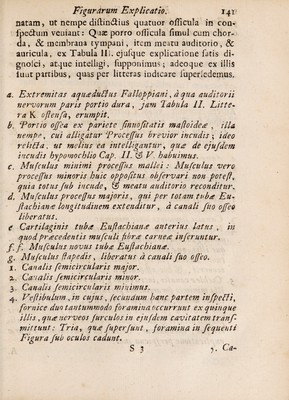 Figurarum Explicatio. 141
natam, ut nempe distinctius quatuor officula in con-
spectum veniant: Quæ porro officula simul cum chor-
da, & membrana tympani, item meatu auditorio, &
auricula, ex Tabula II. ejusque explicatione satis di-
gnosci, atque intelligi, supponimus; adeoque ex illis
sunt partibus, quas per litteras indicare supersedemus.
a. Extremitas aquæductus Falloppiani, à qua auditorii
nervorum paris portio dura, jam Tabula II. Litte-
ra K ostensa, erumpit.
b. Portio ossea ex pariete sinuositatis mastoideæ, illa
nempe, cui alligatur Processus brevior incudis; ideo
relicta, ut melius ea intelligantur, quæ de ejusdem
incudis hypomochlio Cap. II. & V. habuimus.
c. Musculus minimi processus mallei: Musculus vero
processus minoris huic oppositus observari non potest,
quia totus sub incude, & meatu auditorio reconditur.
d. Musculus processus majoris, qui per totam tubæ Eu-
stachianæ longitudinem extenditur, à canali suo osseo
liberatus.
e Cartilaginis tubæ Eustachianæ anterius latus, in
quod præcedentis musculi fibræ carneæ inseruntur.
f. f. Musculus novus tubæ Eustachianæ.
g. Musculus stapedis, liberatus à canali suo osseo.
1. Canalis semicircularis major.
2. Canalis semicircularis minor.
3. Canalis semicircularis minimus.
4. Vestibulum, in cujus, secundum hanc partem inspecti,
fornice duo tantummodo foramina occurrunt ex quinque
illis, quæ nerveos surculos in ejusdem cavitatem trans-
mittunt: Tria, quæ supersunt, foramina in sequenti
Figura sub oculos cadunt.
S 3 5. Ca-